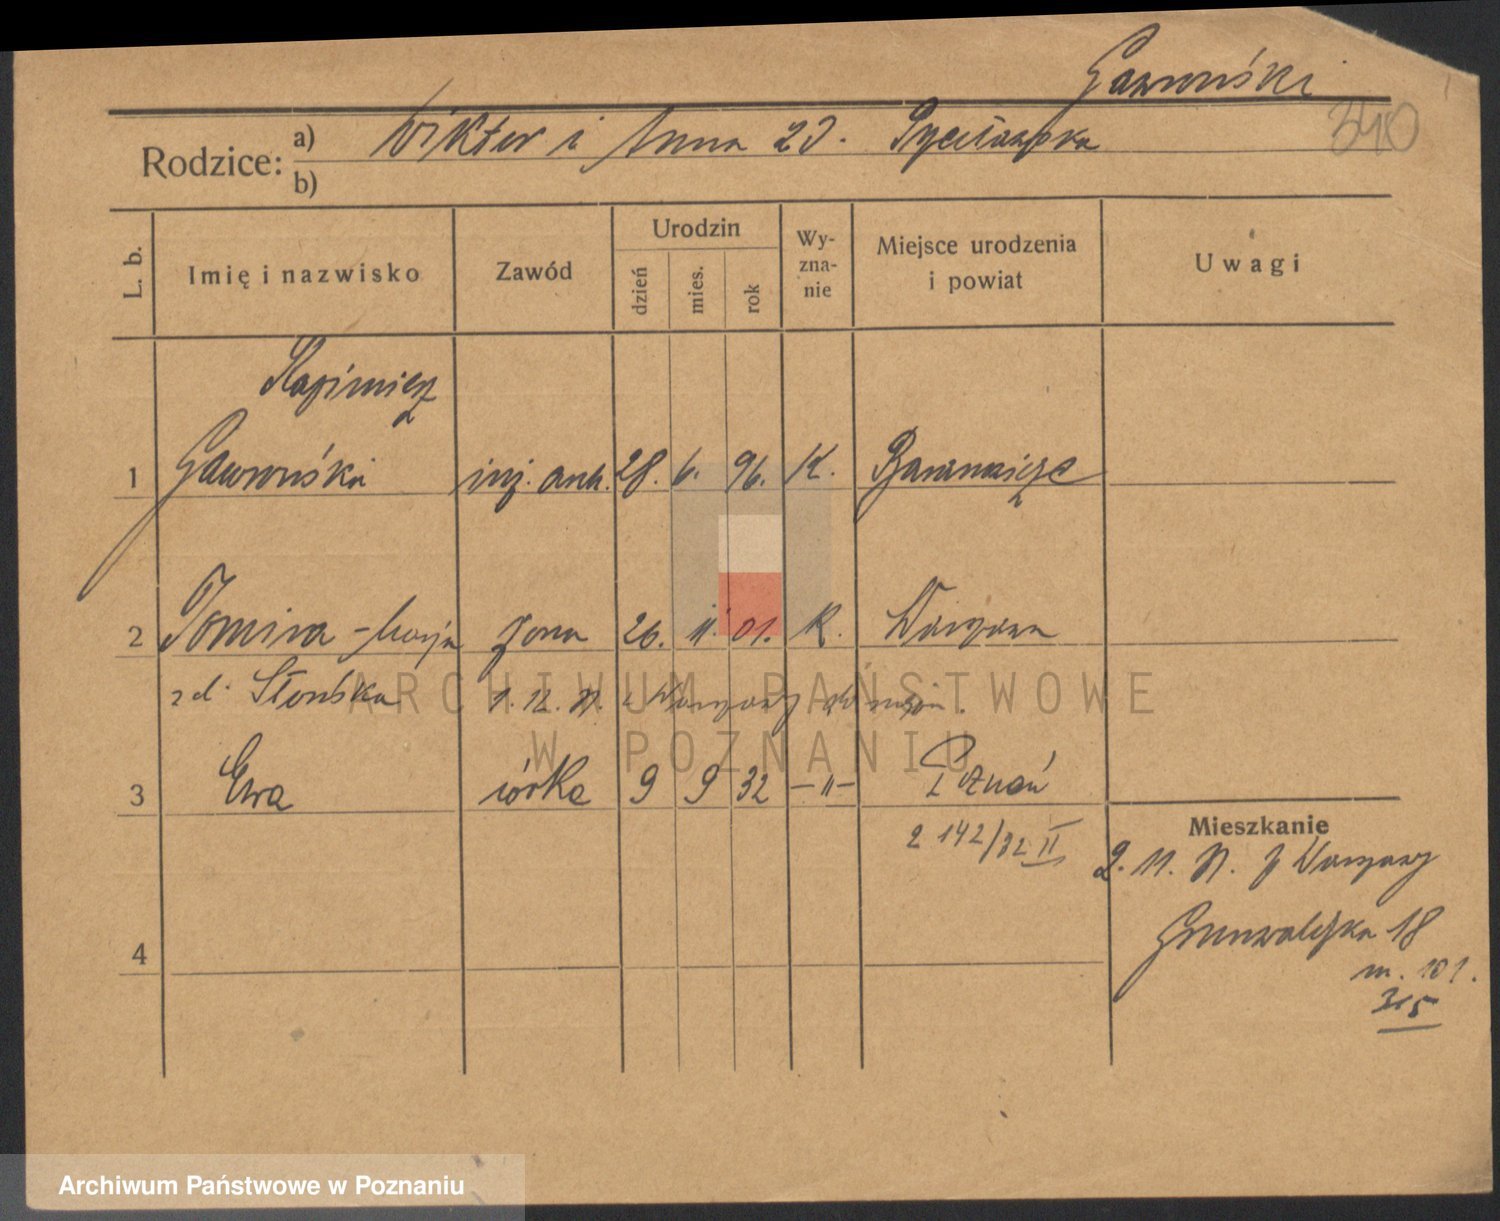 Gawroński
340
Rodzice:
a) Wiktor i Anna zd.
b)
L. b.
Imię i nazwisko
Zawód
Urodzin
dzień
mies.
rok
Wy-
zna-
nie
Miejsce urodzenia
i powiat
Uwagi
Kazimierz
1 Gawroński inż. arch. 28. 6. 96. K.
2 Tomira - Marja żona 26. 11. 01. K. Warszawa
zd. Słońska 1. 12. 31. w Warszawy
3 Ewa córka 9 9 32 -"- Poznań
2142/32 II
Mieszkanie
2. 11. 31. z Warszawy
Grunwaldzka 18
m. 101.
315
4
ARCHIWUM PAŃSTWOWE
W POZNANIU
Archiwum Państwowe w Poznaniu